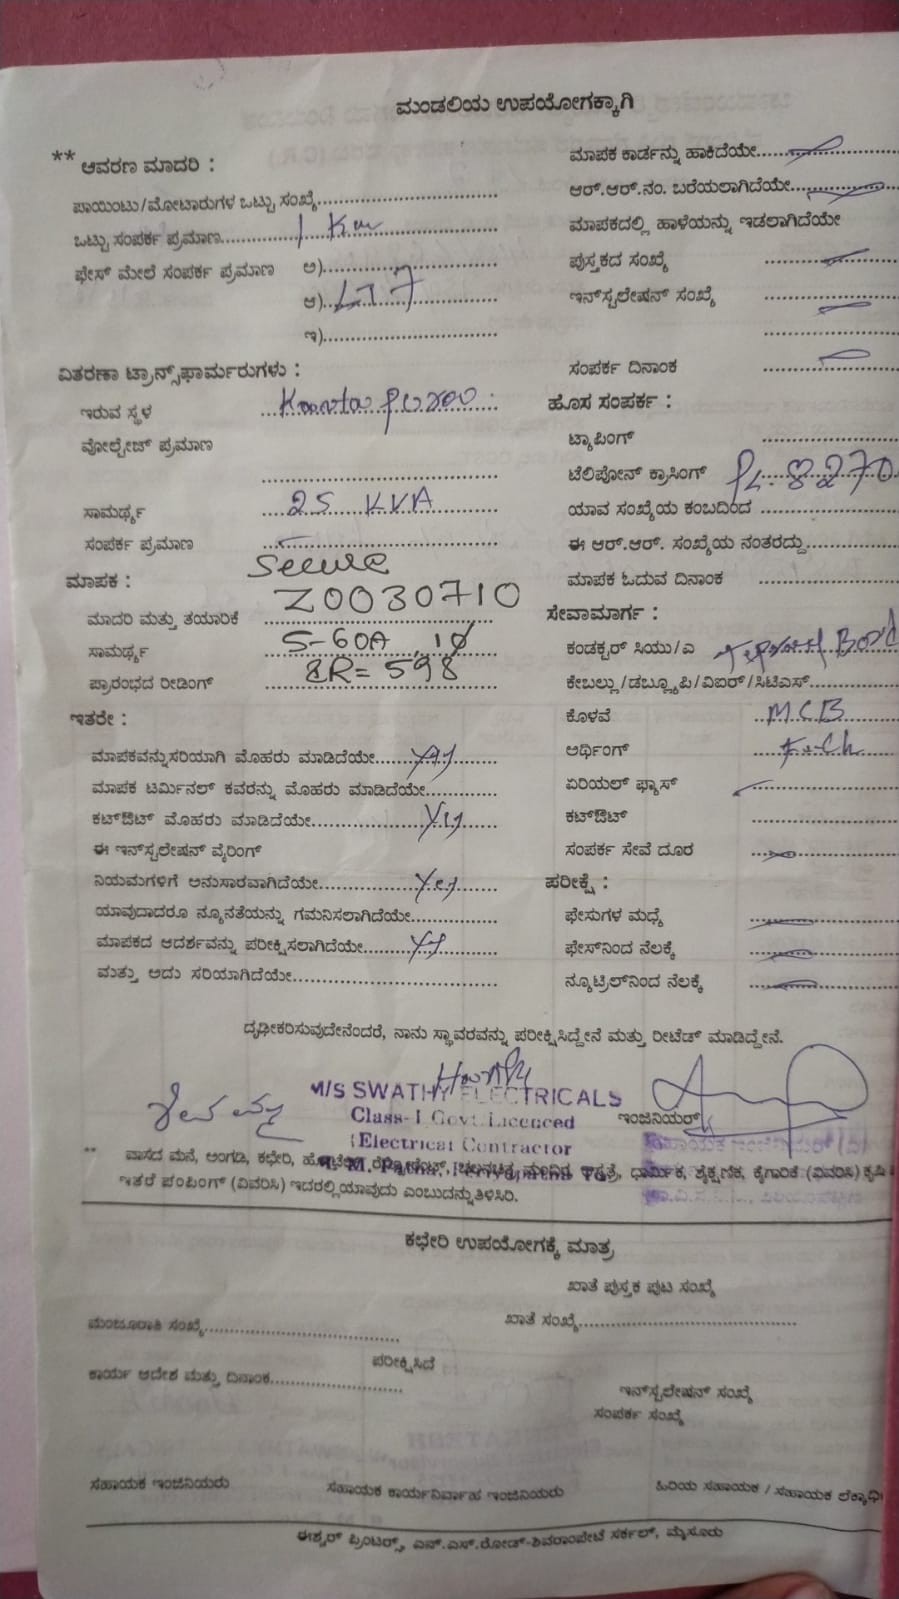 ಮಂಡಲಿಯ ಉಪಯೋಗಕ್ಕಾಗಿ
** ಆವರಣ ಮಾದರಿ :
ಪಾಯಿಂಟು/ಮೋಟಾರುಗಳ ಒಟ್ಟು ಸಂಖ್ಯೆ
ಒಟ್ಟು ಸಂಪರ್ಕ ಪ್ರಮಾಣ 1 Kw
ಫೇಸ್ ಮೇಲೆ ಸಂಪರ್ಕ ಪ್ರಮಾಣ ಅ)
ಆ) LT 7
ಇ)
ವಿತರಣಾ ಟ್ರಾನ್ಸ್‌ಫಾರ್ಮರುಗಳು :
ಇರುವ ಸ್ಥಳ
ವೋಲ್ಟೇಜ್ ಪ್ರಮಾಣ
ಸಾಮರ್ಥ್ಯ 25 KVA
ಸಂಪರ್ಕ ಪ್ರಮಾಣ
ಮಾಪಕ : Secure
ಮಾದರಿ ಮತ್ತು ತಯಾರಿಕೆ Z0030710
ಸಾಮರ್ಥ್ಯ 5-60A 1ϕ
ಪ್ರಾರಂಭದ ರೀಡಿಂಗ್ IR= 598
ಇತರೇ :
ಮಾಪಕವನ್ನು ಸರಿಯಾಗಿ ಮೊಹರು ಮಾಡಿದೆಯೇ Yes
ಮಾಪಕ ಟರ್ಮಿನಲ್ ಕವರನ್ನು ಮೊಹರು ಮಾಡಿದೆಯೇ
ಕಟ್‌ಔಟ್ ಮೊಹರು ಮಾಡಿದೆಯೇ Yes
ಈ ಇನ್‌ಸ್ಟಲೇಷನ್ ವೈರಿಂಗ್
ನಿಯಮಗಳಿಗೆ ಅನುಸಾರವಾಗಿದೆಯೇ Yes
ಯಾವುದಾದರೂ ನ್ಯೂನತೆಯನ್ನು ಗಮನಿಸಲಾಗಿದೆಯೇ
ಮಾಪಕದ ಆದರ್ಶವನ್ನು ಪರೀಕ್ಷಿಸಲಾಗಿದೆಯೇ Yes
ಮತ್ತು ಅದು ಸರಿಯಾಗಿದೆಯೇ
ಮಾಪಕ ಕಾರ್ಡನ್ನು ಹಾಕಿದೆಯೇ
ಆರ್.ಆರ್.ನಂ. ಬರೆಯಲಾಗಿದೆಯೇ
ಮಾಪಕದಲ್ಲಿ ಹಾಳೆಯನ್ನು ಇಡಲಾಗಿದೆಯೇ
ಪುಸ್ತಕದ ಸಂಖ್ಯೆ
ಇನ್‌ಸ್ಟಲೇಷನ್ ಸಂಖ್ಯೆ
ಸಂಪರ್ಕ ದಿನಾಂಕ
ಹೊಸ ಸಂಪರ್ಕ :
ಟ್ಯಾಪಿಂಗ್
ಟೆಲಿಪೋನ್ ಕ್ರಾಸಿಂಗ್ PL. 8270
ಯಾವ ಸಂಖ್ಯೆಯ ಕಂಬದಿಂದ
ಈ ಆರ್.ಆರ್. ಸಂಖ್ಯೆಯ ನಂತರದ್ದು
ಮಾಪಕ ಓದುವ ದಿನಾಂಕ
ಸೇವಾಮಾರ್ಗ :
ಕಂಡಕ್ಟರ್ ಸಿಯು/ಎ
ಕೇಬಲ್ಲು/ಡಬ್ಲ್ಯೂಪಿ/ವಿಐಆರ್/ಸಿಟಿಎಸ್
ಕೊಳವೆ MCB
ಅರ್ಥಿಂಗ್
ಏರಿಯಲ್ ಫ್ಯೂಸ್
ಕಟ್‌ಔಟ್
ಸಂಪರ್ಕ ಸೇವೆ ದೂರ
ಪರೀಕ್ಷೆ :
ಫೇಸುಗಳ ಮಧ್ಯೆ
ಫೇಸ್‌ನಿಂದ ನೆಲಕ್ಕೆ
ನ್ಯೂಟ್ರಲ್‌ನಿಂದ ನೆಲಕ್ಕೆ
ದೃಢೀಕರಿಸುವುದೇನೆಂದರೆ, ನಾನು ಸ್ಥಾವರವನ್ನು ಪರೀಕ್ಷಿಸಿದ್ದೇನೆ ಮತ್ತು ರೀಟೆಡ್ ಮಾಡಿದ್ದೇನೆ.
M/S SWATHY ELECTRICALS
Class-I Govt. Licenced
Electrical Contractor
ಇಂಜಿನಿಯರ್
** ವಾಸದ ಮನೆ, ಅಂಗಡಿ, ಕಛೇರಿ, ಧಾರ್ಮಿಕ, ಶೈಕ್ಷಣಿಕ, ಕೈಗಾರಿಕೆ (ವಿವರಿಸಿ) ಕೃಷಿ
ಇತರೆ ಪಂಪಿಂಗ್ (ವಿವರಿಸಿ) ಇದರಲ್ಲಿ ಯಾವುದು ಎಂಬುದನ್ನು ತಿಳಿಸಿರಿ.
ಕಛೇರಿ ಉಪಯೋಗಕ್ಕೆ ಮಾತ್ರ
ಖಾತೆ ಪುಸ್ತಕ ಪುಟ ಸಂಖ್ಯೆ
ಮಂಜೂರಾತಿ ಸಂಖ್ಯೆ
ಖಾತೆ ಸಂಖ್ಯೆ
ಪರೀಕ್ಷಿಸಿದೆ
ಕಾರ್ಯ ಆದೇಶ ಮತ್ತು ದಿನಾಂಕ
ಇನ್‌ಸ್ಟಲೇಷನ್ ಸಂಖ್ಯೆ
ಸಂಪರ್ಕ ಸಂಖ್ಯೆ
ಸಹಾಯಕ ಇಂಜಿನಿಯರು
ಸಹಾಯಕ ಕಾರ್ಯನಿರ್ವಾಹ ಇಂಜಿನಿಯರು
ಹಿರಿಯ ಸಹಾಯಕ / ಸಹಾಯಕ ಲೆಕ್ಕಾಧಿ
ಈಶ್ವರ್ ಪ್ರಿಂಟರ್ಸ್, ಎನ್.ಎಸ್.ರೋಡ್-ಶಿವರಾಂಪೇಟೆ ಸರ್ಕಲ್, ಮೈಸೂರು